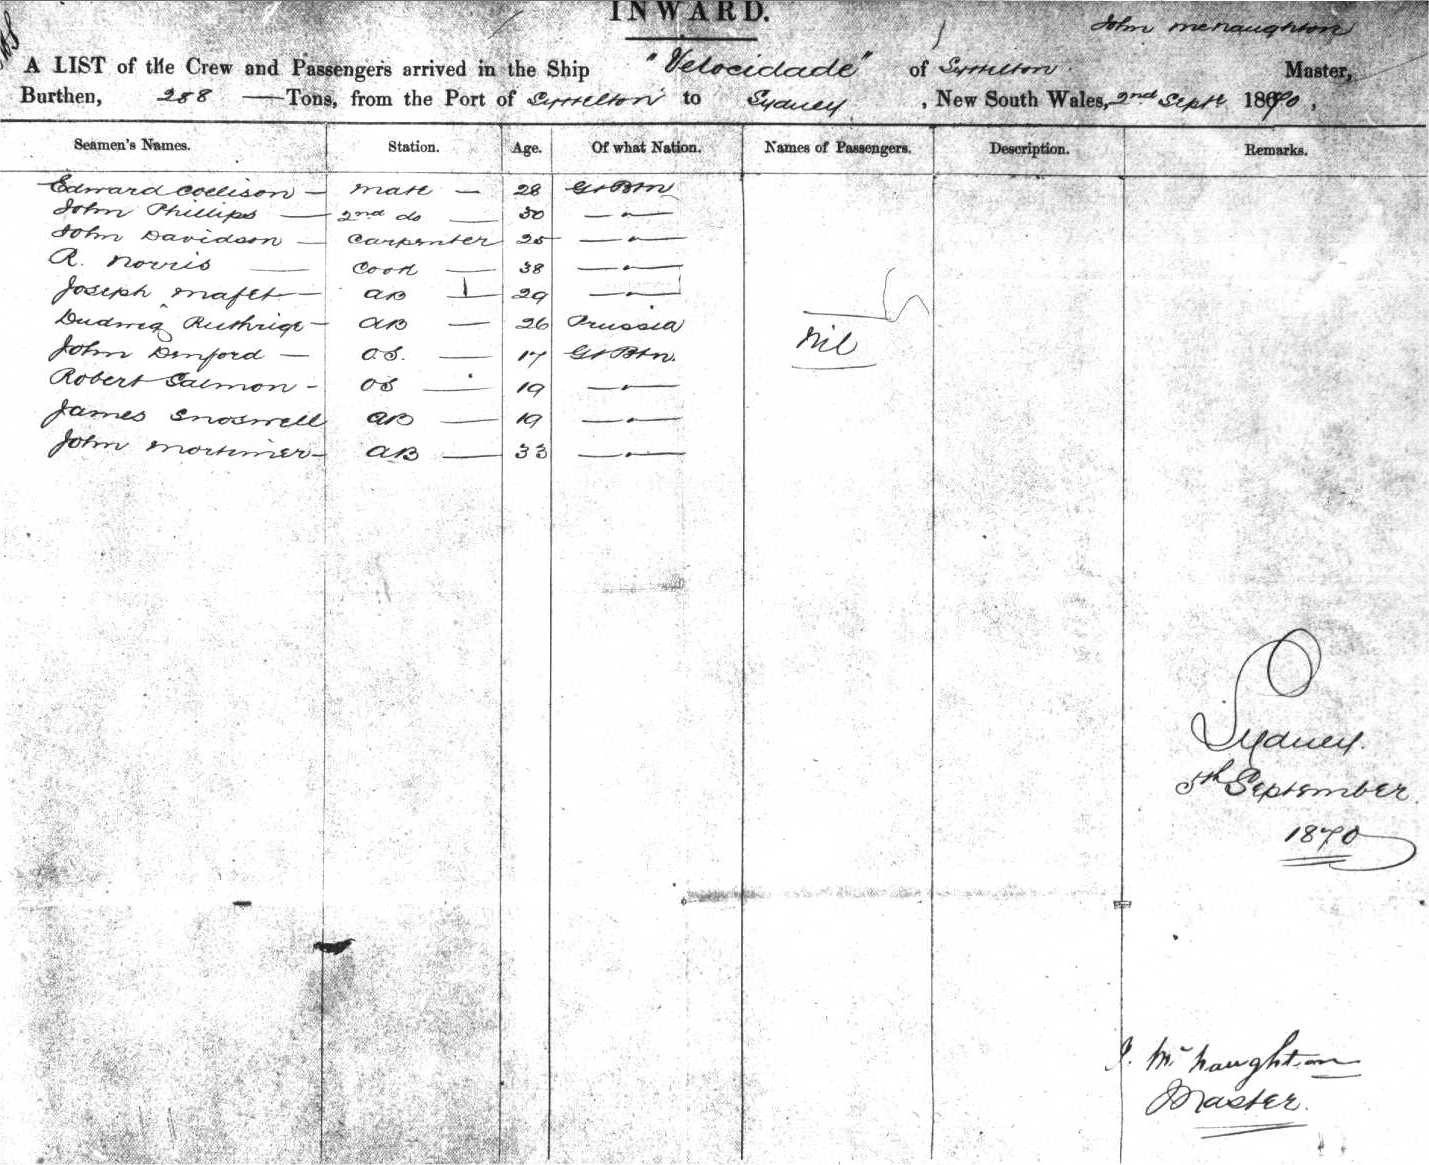 INWARD.
John McNaughton
A LIST of the Crew and Passengers arrived in the Ship "Velocidade" of Lyttelton Master,
Burthen, 288 Tons, from the Port of Lyttelton to Sydney, New South Wales, 2nd Sept 1870,
Seamen's Names. Station. Age. Of what Nation. Names of Passengers. Description. Remarks.
Edward Collison — Mate — 28 Gt Btn
John Phillips — 2nd do — 30 — " —
John Davidson — Carpenter 25 — " —
R. Norris — Cook — 38 — " —
Joseph — AB — 29 — " —
Ludwig — AB — 26 Prussia
Nil
John Denford — OS. — 17 Gt Btn.
Robert Salmon - OS — 19 — " —
James Snoswell AB — 19 — " —
John Mortimer - AB — 33 — " —
Sydney.
5th September.
1870
J. McNaughton
Master.